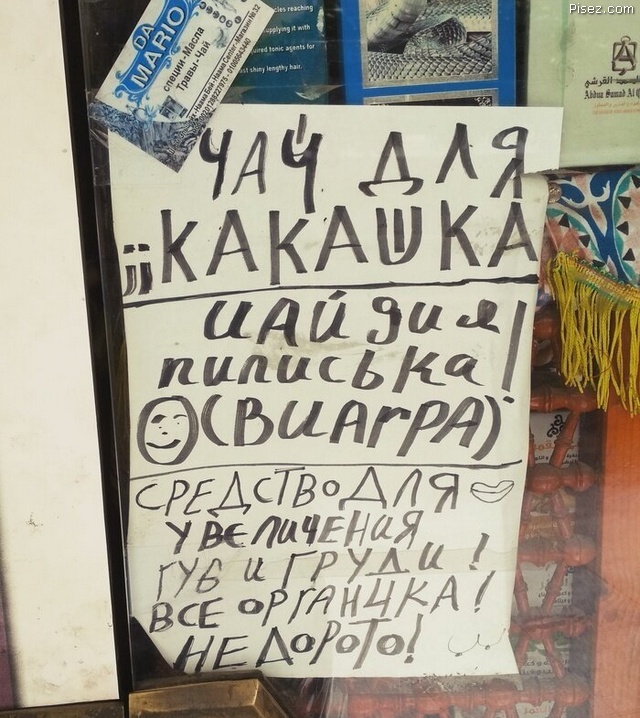 Pisez.com
DA MARIO
специи-Масла
Травы-Чай
supplying it with
tonic agents for
shiny lengthy hair.
ЧАЙ ДЛЯ
¡¡КАКАШКА
ИАЙ ДИЯ
ПИПИСЬКА!
(ВИАГРА)
СРЕДСТВО ДЛЯ
УВЕЛИЧЕНИЯ
ГУБ И ГРУДИ!
ВСЕ ОРГАНЧКА!
НЕ ДОРОТО!